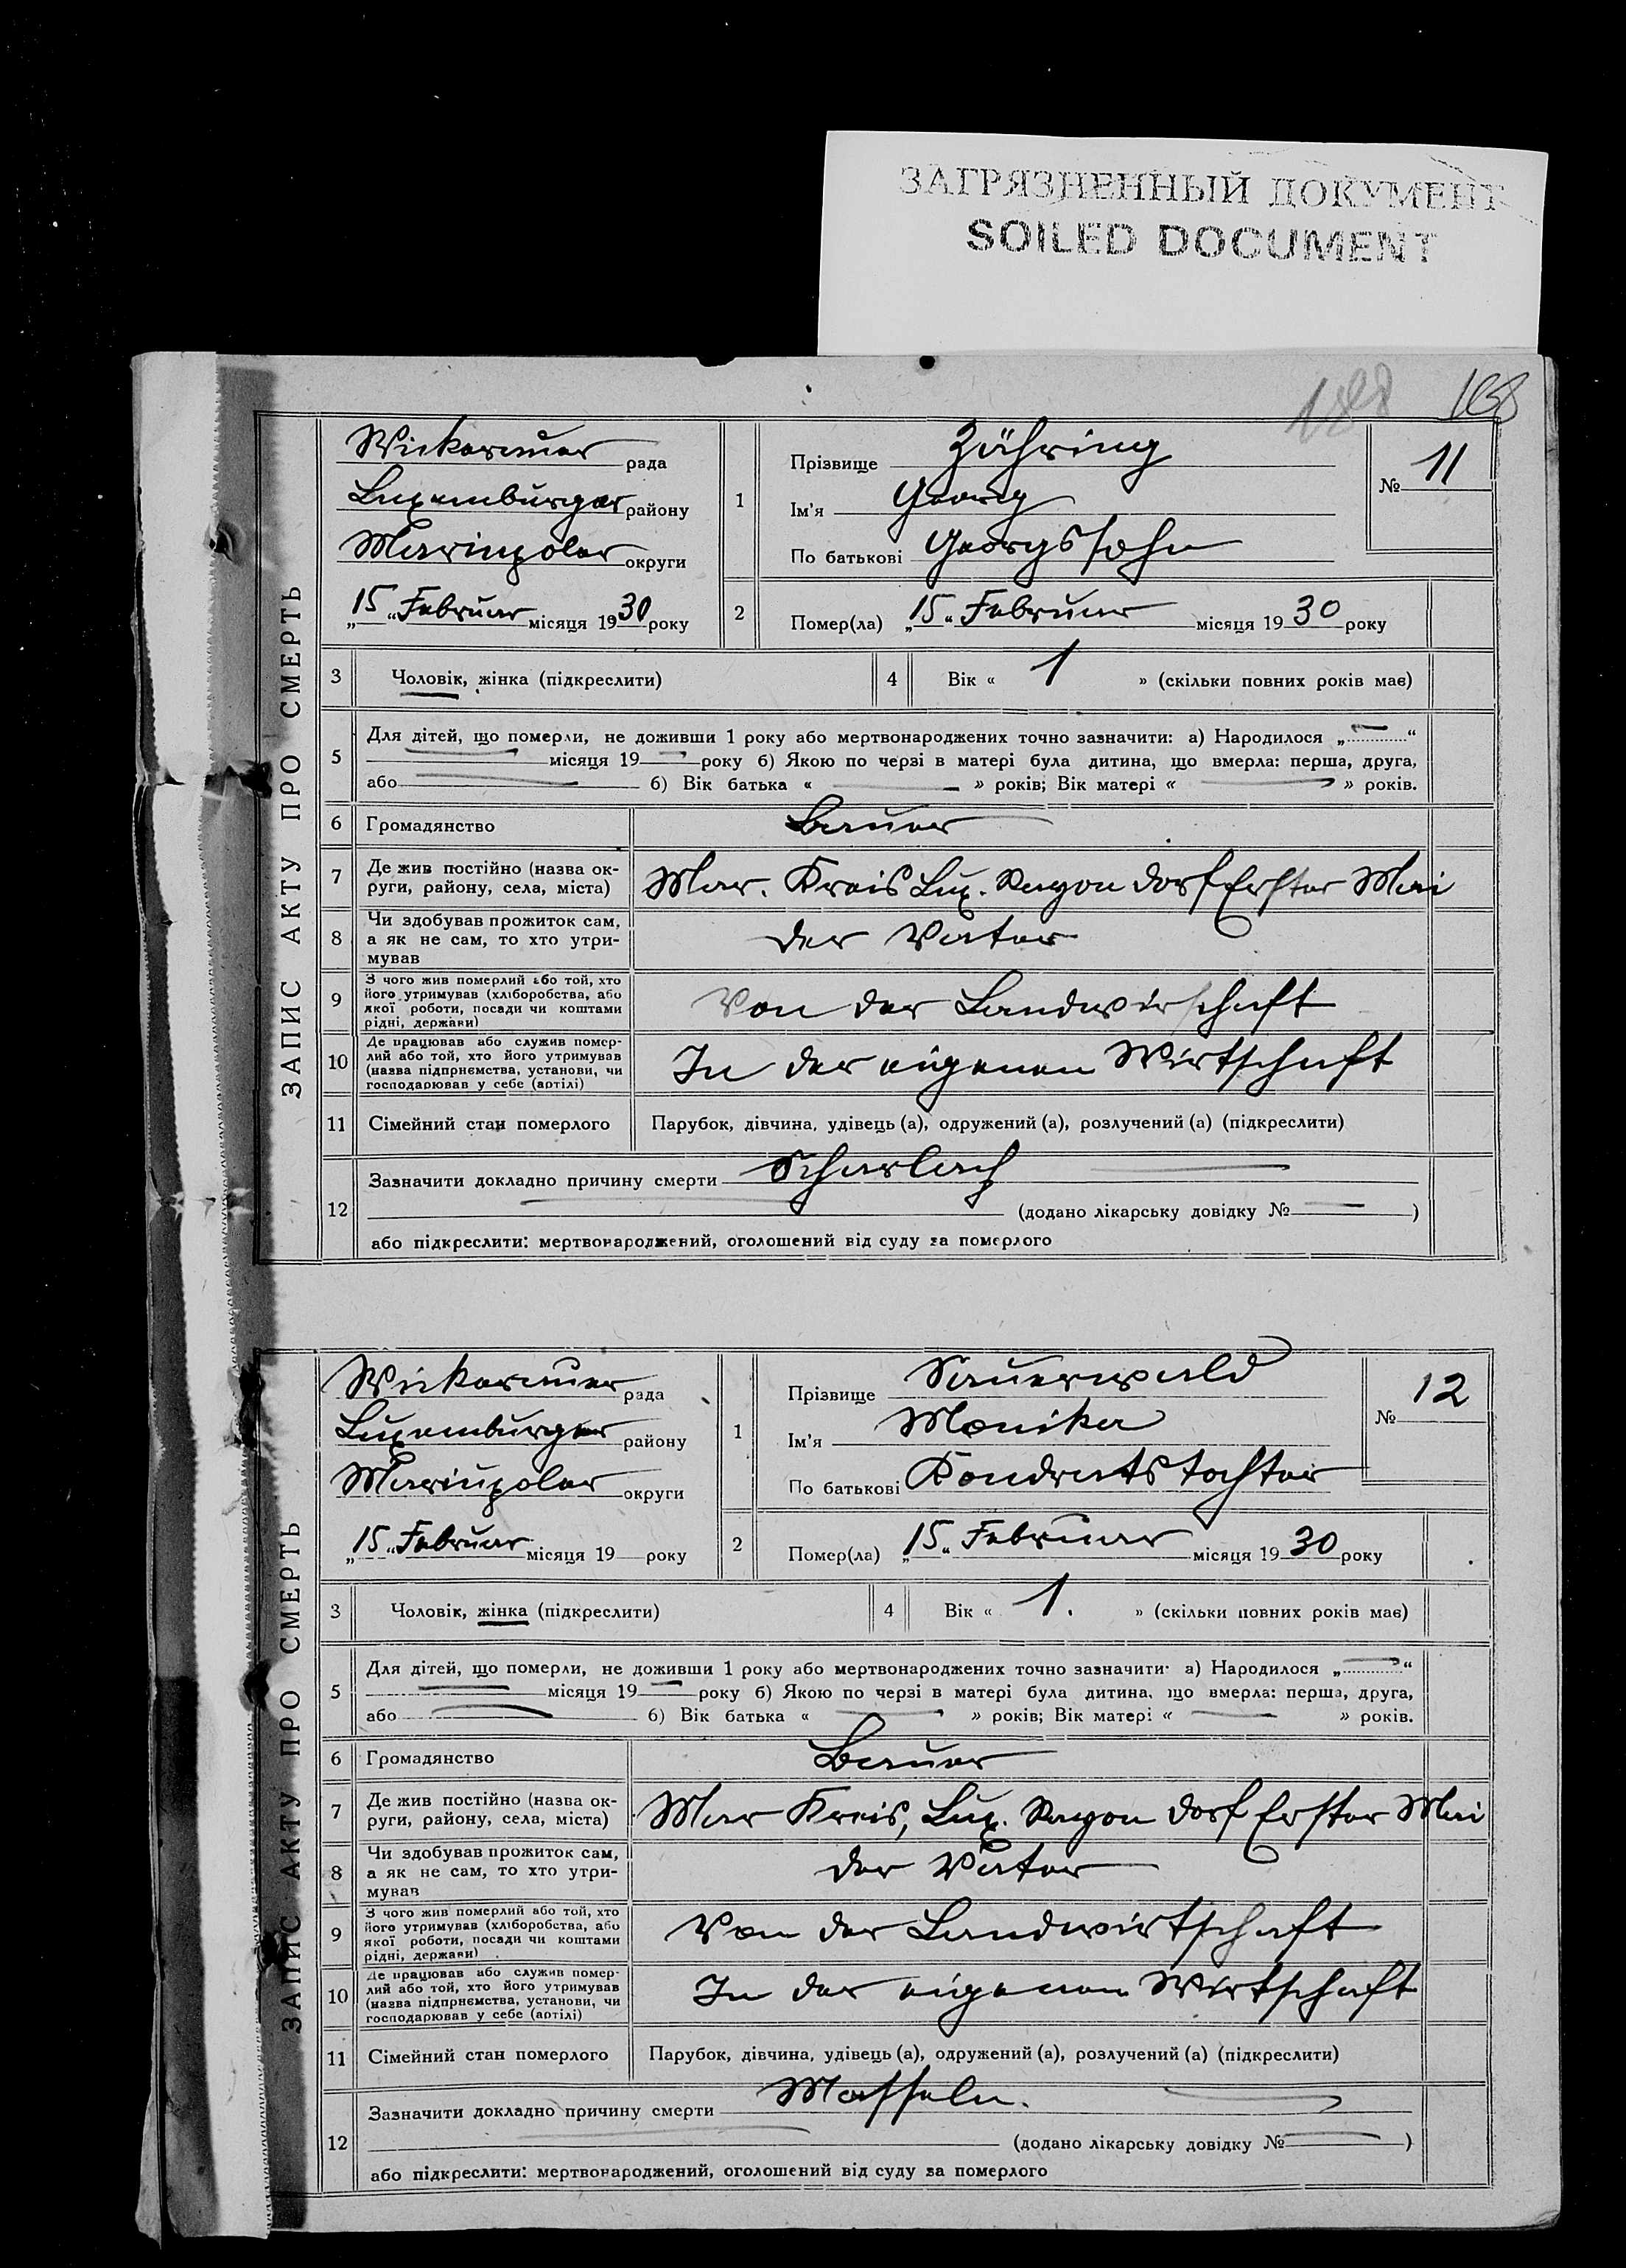 ЗАГРЯЗНЕННЫЙ ДОКУМЕНТ
SOILED DOCUMENT
188 168
ЗАПИС АКТУ ПРО СМЕРТЬ
Wickerauer рада
Luxemburger району
Mariupoler округи
„15“ Februar місяця 1930 року
1 Прізвище Zähring
Ім'я Georg
По батькові Georgssohn
№ 11
2 Помер(ла) „15“ Februar місяця 1930 року
3 Чоловік, жінка (підкреслити)
4 Вік « 1 » (скільки повних років має)
5 Для дітей, що померли, не доживши 1 року або мертвонароджених точно зазначити: а) Народилося „ — “
— місяця 19 — року б) Якою по черзі в матері була дитина, що вмерла: перша, друга,
або — б) Вік батька « — » років; Вік матері « — » років.
6 Громадянство Bauer
7 Де жив постійно (назва ок-
руги, району, села, міста) Mar. Kreis Lux. Rayon Dorf Erster Mai
8 Чи здобував прожиток сам,
а як не сам, то хто утри-
мував der Vater
9 З чого жив померлий або той, хто
його утримував (хліборобства, або
якої роботи, посади чи коштами
рідні, держави) Von der Landwirschaft
10 Де працював або служив помер-
лий або той, хто його утримував
(назва підприємства, установи, чи
господарював у себе (артілі) In der eigenen Wirtschaft
11 Сімейний стан померлого Парубок, дівчина, удівець (а), одружений (а), розлучений (а) (підкреслити)
12 Зазначити докладно причину смерти Scharlach —
— (додано лікарську довідку № — )
або підкреслити: мертвонароджений, оголошений від суду за померлого
ЗАПИС АКТУ ПРО СМЕРТЬ
Wickerauer рада
Luxemburger району
Mariupoler округи
„15“ Februar місяця 19 року
1 Прізвище Sauerwald
Ім'я Monika
По батькові Kondratstochter
№ 12
2 Помер(ла) „15“ Februar місяця 1930 року
3 Чоловік, жінка (підкреслити)
4 Вік « 1. » (скільки повних років має)
5 Для дітей, що померли, не доживши 1 року або мертвонароджених точно зазначити: а) Народилося „ — “
— місяця 19 — року б) Якою по черзі в матері була дитина, що вмерла: перша, друга,
або — б) Вік батька « — » років; Вік матері « — » років.
6 Громадянство Bauer
7 Де жив постійно (назва ок-
руги, району, села, міста) Mar Kreis, Lux. Rayon Dorf Erster Mai
8 Чи здобував прожиток сам,
а як не сам, то хто утри-
мував der Vater
9 З чого жив померлий або той, хто
його утримував (хліборобства, або
якої роботи, посади чи коштами
рідні, держави) Von der Landwirtschaft
10 Де працював або служив помер-
лий або той, хто його утримував
(назва підприємства, установи, чи
господарював у себе (артілі) In der eigenen Wirtschaft
11 Сімейний стан померлого Парубок, дівчина, удівець (а), одружений (а), розлучений (а) (підкреслити)
12 Зазначити докладно причину смерти Masseln. —
— (додано лікарську довідку № — )
або підкреслити: мертвонароджений, оголошений від суду за померлого